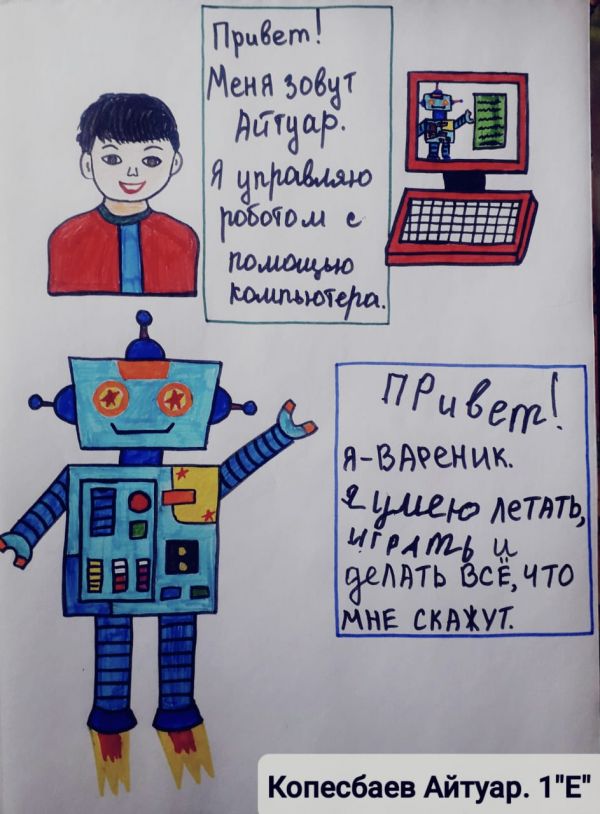 Привет!
Меня зовут
Айтуар.
Я управляю
роботом с
помощью
компьютера.
ПРивет!
Я-ВАРЕНИК.
Я умею ЛЕТАТЬ,
ИГРАТЬ и
ДЕЛАТЬ ВСЁ, ЧТО
МНЕ СКАЖУТ.
Копесбаев Айтуар. 1"Е"